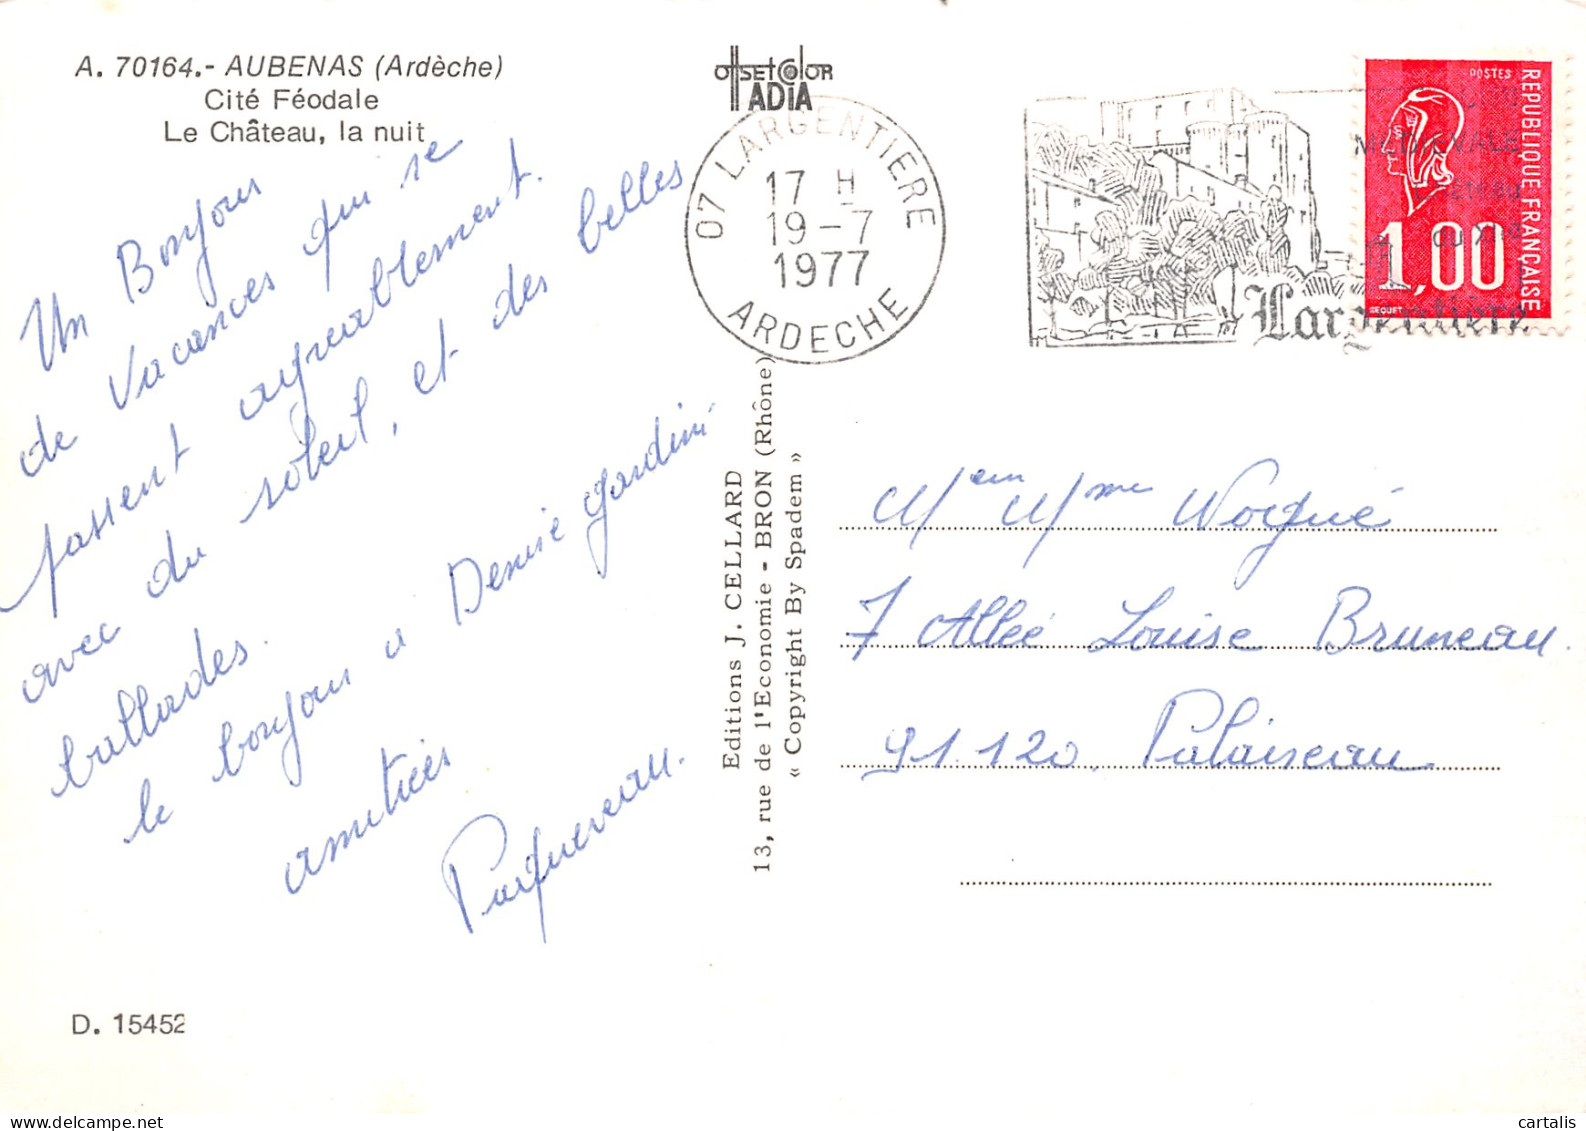 A. 70164.- AUBENAS (Ardèche)
Cité Féodale
Le Château, la nuit
Un Bonjour
de Vacances qui se
passent agreablement.
avec du soleil, et des belles
ballades.
le bonjour a Denise Jardini
amitiés
Parquereau.
D. 15452
OffSETCOlOR
ADIA
07 LARGENTIERE
17 H
19-7
1977
ARDECHE
MEDIEVALE
Largentière
POSTES
REPUBLIQUE FRANÇAISE
1,00
BEQUET
Editions J. CELLARD
13, rue de l'Economie - BRON (Rhône)
« Copyright By Spadem »
Mr em Mme Worgué
7 Allée Louise Bruneau.
91.120. Palaiseau
cartalis